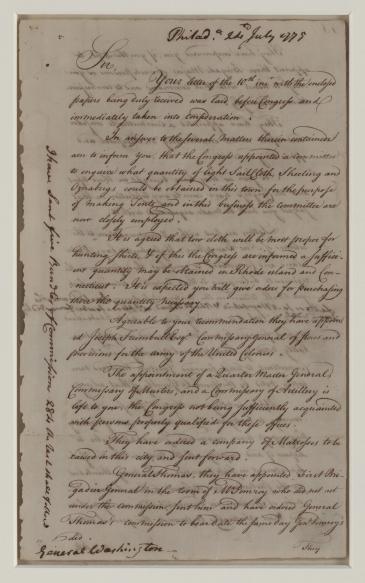 Philad.ᵃ 24ᵗʰ July 1775
Sir,
Your letter of the 10ᵗʰ insᵗ with the enclosed
papers being duly received was laid before Congress and
immediately taken into consideration.
In answer to the several Matters therein contained
am to inform you, that the Congress appointed a committee
to enquire what quantity of light Sail Cloth, Sheeting and
Oznabrigs could be obtained in this town for the purpose
of making Tents, and in this business the committee are
now closely employed.
It is agreed that tow cloth will be most proper for
hunting shirts, & of this the Congress are informed a suffici-
ent quantity may be obtained in Rhode island and Con-
necticut. It is expected you will give orders for purchasing
there the quantity necessary.
Agreeable to your recommendation they have appoint
ed Joseph Trumbull Esqʳ Commissary General of stores and
provisions for the army of the United Colonies.
The appointment of a Quarter Master General,
Commissary of Musters, and a Commissary of Artillery is
left to you, the Congress not being sufficiently acquainted
with persons properly qualified for these offices.
They have ordered a company of Matrosses to be
raised in this city and sent forward.
General Thomas, they have appointed First Bri-
gadier General in the room of Mʳ Pomroy who did not act
under the commission sent him and have ordered General
Thomas's commission to bear date the same day Genˡ Pomroy's
did.
General Washington
They
I have Sent five Bundles of Commissions 284 the